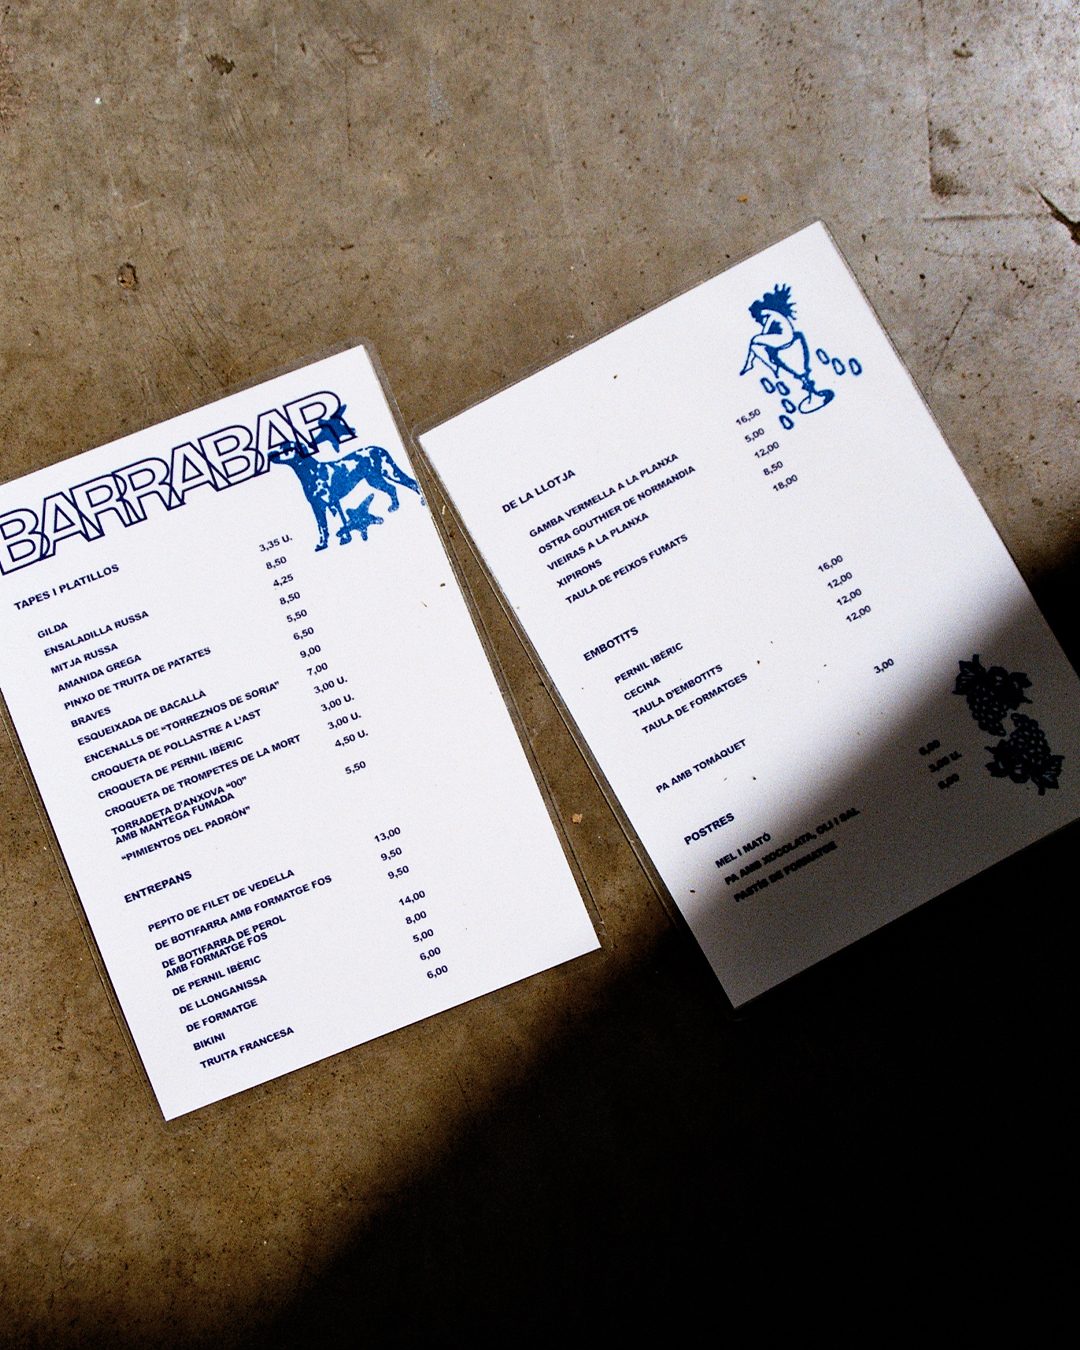 BARRABAR
TAPES I PLATILLOS
GILDA 3,35 U.
ENSALADILLA RUSSA 8,50
MITJA RUSSA 4,25
AMANIDA GREGA 8,50
PINXO DE TRUITA DE PATATES 5,50
BRAVES 6,50
ESQUEIXADA DE BACALLÀ 9,00
ENCENALLS DE “TORREZNOS DE SORIA” 7,00
CROQUETA DE POLLASTRE A L'AST 3,00 U.
CROQUETA DE PERNIL IBÈRIC 3,00 U.
CROQUETA DE TROMPETES DE LA MORT 3,00 U.
TORRADETA D'ANXOVA “00” 4,50 U.
AMB MANTEGA FUMADA
“PIMIENTOS DEL PADRÓN” 5,50
ENTREPANS
PEPITO DE FILET DE VEDELLA 13,00
DE BOTIFARRA AMB FORMATGE FOS 9,50
DE BOTIFARRA DE PEROL 9,50
AMB FORMATGE FOS
DE PERNIL IBÈRIC 14,00
DE LLONGANISSA 8,00
DE FORMATGE 5,00
BIKINI 6,00
TRUITA FRANCESA 6,00
DE LA LLOTJA
GAMBA VERMELLA A LA PLANXA 16,50
OSTRA GOUTHIER DE NORMANDIA 5,00
VIEIRAS A LA PLANXA 12,00
XIPIRONS 8,50
TAULA DE PEIXOS FUMATS 18,00
EMBOTITS
PERNIL IBÈRIC 16,00
CECINA 12,00
TAULA D'EMBOTITS 12,00
TAULA DE FORMATGES 12,00
PA AMB TOMÀQUET 3,00
POSTRES
MEL I MATÓ
PA AMB XOCOLATA, OLI I SAL 3,00 U.
PASTÍS DE FORMATGE